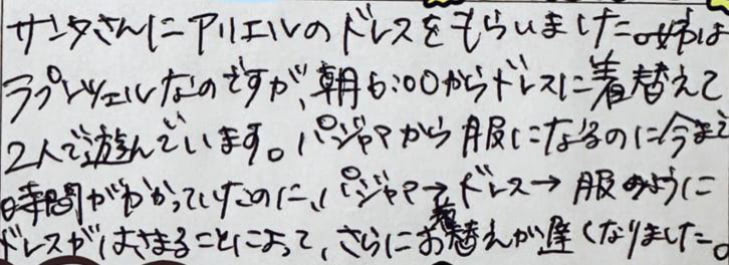 サンタさんにアリエルのドレスをもらいました。姉は
ラプンツェルなのですが、朝6:00からドレスに着替えて
2人で遊んでいます。パジャマから服になるのに今まで
時間がかかっていたのに、パジャマ→ドレス→服のように
ドレスがはさまることによって、さらにお着替えが遅くなりました。